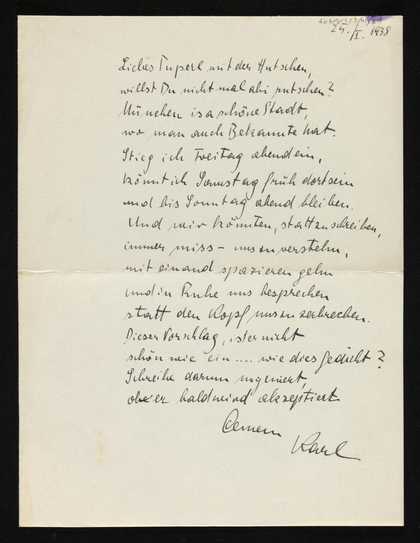 24./I. 1938
Liebes Tuperl mit der Hutschen,
willst Du nicht mal abi rutschen?
München is a schöne Stadt,
wo man auch Bekannte hat.
Stieg ich Freitag abend ein,
könnt ich Samstag früh dort sein
und bis Sonntag abend bleiben.
Und wir könnten, statt zu schreiben,
immer miss- uns zu verstehn,
miteinand spazieren gehn
und in Ruhe uns besprechen
statt den Kopf uns zu zerbrechen.
Dieser Vorschlag, ist er nicht
schön wie ein .... wie dies Gedicht?
Schreibe darum ungeniert,
ob er bald wird akzeptiert
Deinem
Karl